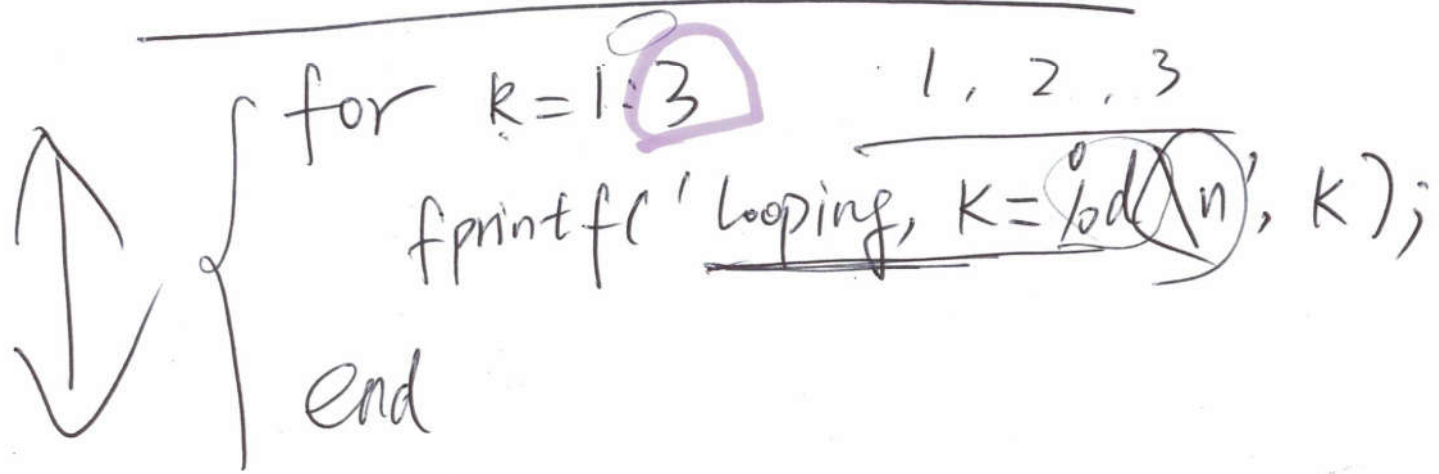 for k=1:3 1, 2, 3
fprintf('Looping, K=%d\n', K);
end